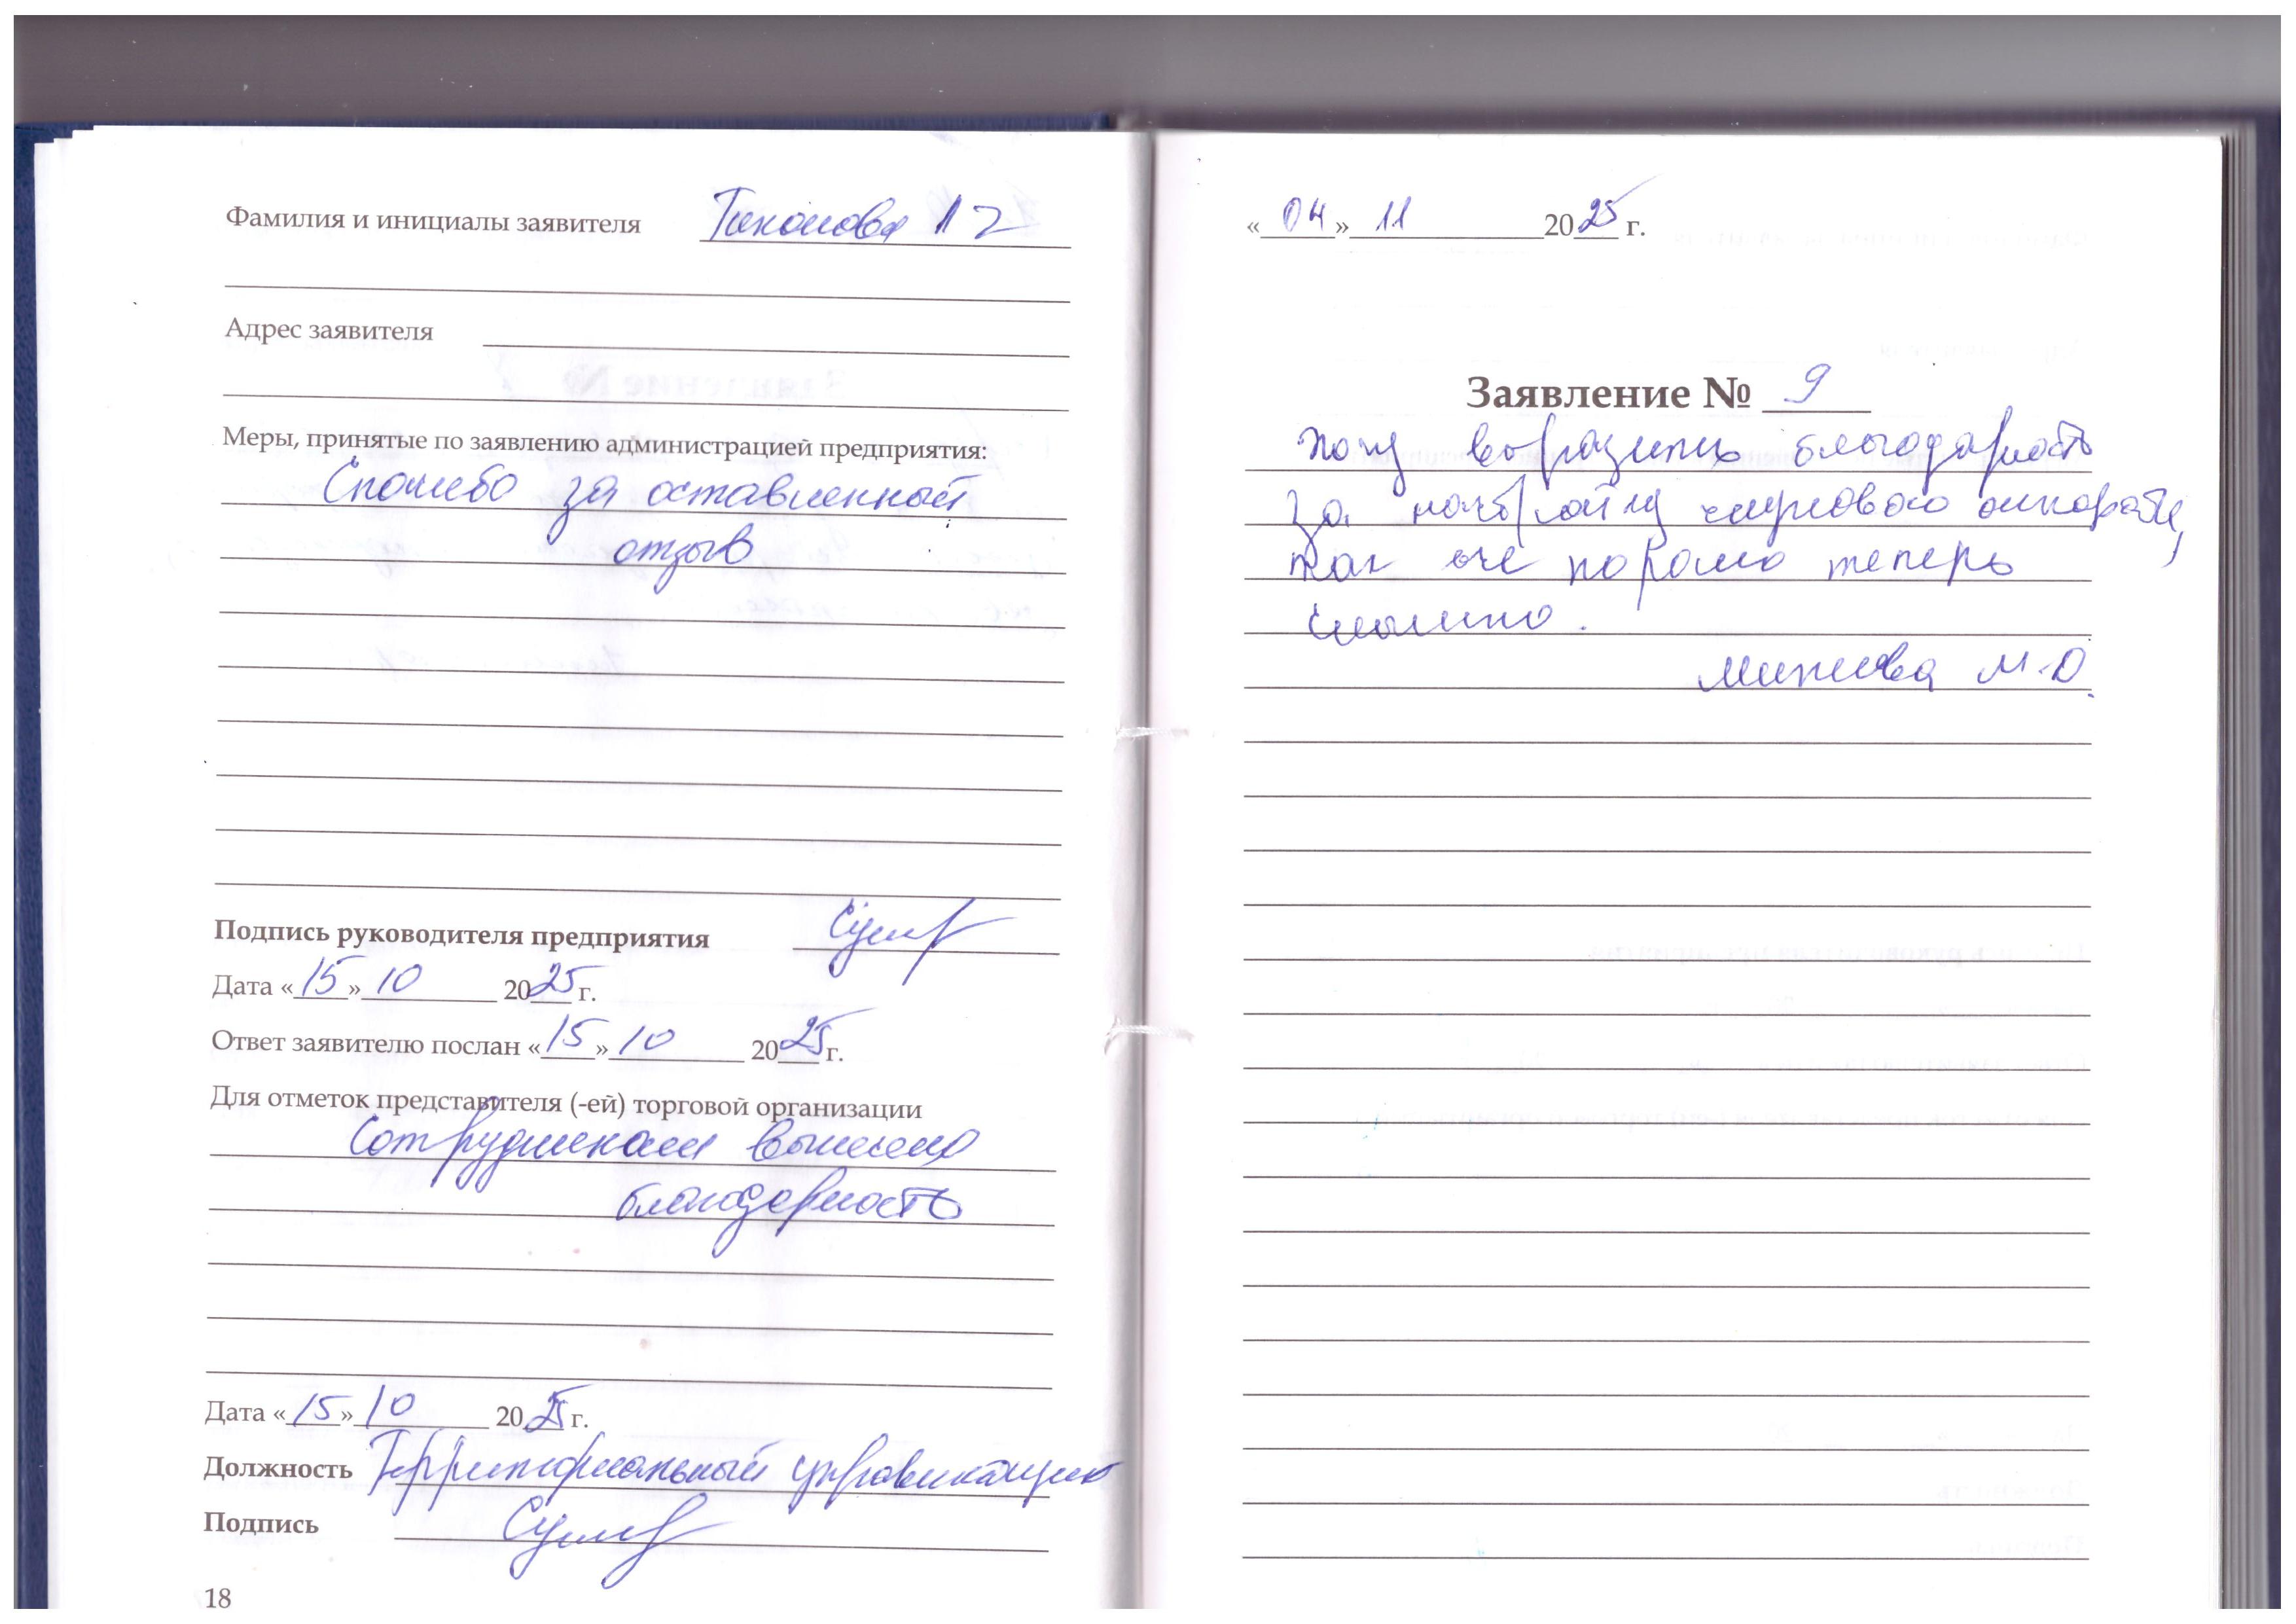 Фамилия и инициалы заявителя Тихонова
Адрес заявителя
Меры, принятые по заявлению администрацией предприятия:
Спасибо за оставленный
отзыв
Подпись руководителя предприятия
Дата «15» 10 2025 г.
Ответ заявителю послан «15» 10 2025 г.
Для отметок представителя (-ей) торговой организации
Сотрудникам вынесена
благодарность
Дата «15» 10 2025 г.
Должность Территориальный управляющий
Подпись
18
«04» 11 2025 г.
Заявление № 9
Хочу выразить благодарность
за настройку слухового аппарата,
так как хорошо теперь
слышно.
М.О.